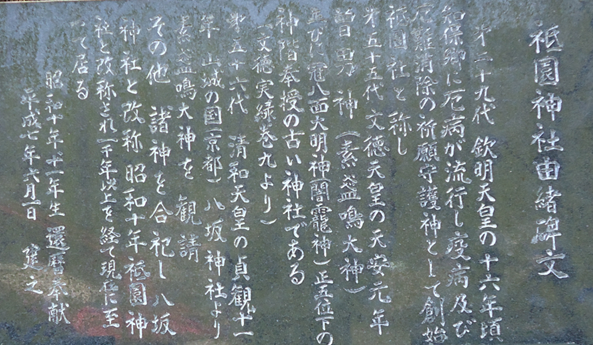 祇園神社由緒碑文
第二十九代 欽明天皇の十六年頃
知保郷に厄病が流行し疫病及び
厄難消除の祈願守護神として創始
祇園社と称し
第五十五代 文徳天皇の天安元年
曽男神(素盞鳴大神)
並びに冠八面大明神闇龗神)正五位下の
神階奉授の古い神社である
(文徳実録巻九より)
第五十六代 清和天皇の貞観十一
年 山城の国(京都)八坂神社より
素盞鳴大神を 観請
その他 諸神を合祀し八坂
神社と改称 昭和十年祇園神
社と改称され一千年以上を経て現在に至
って居る
昭和十年 十一年生 還暦奉献
平成七年六月一日 建之